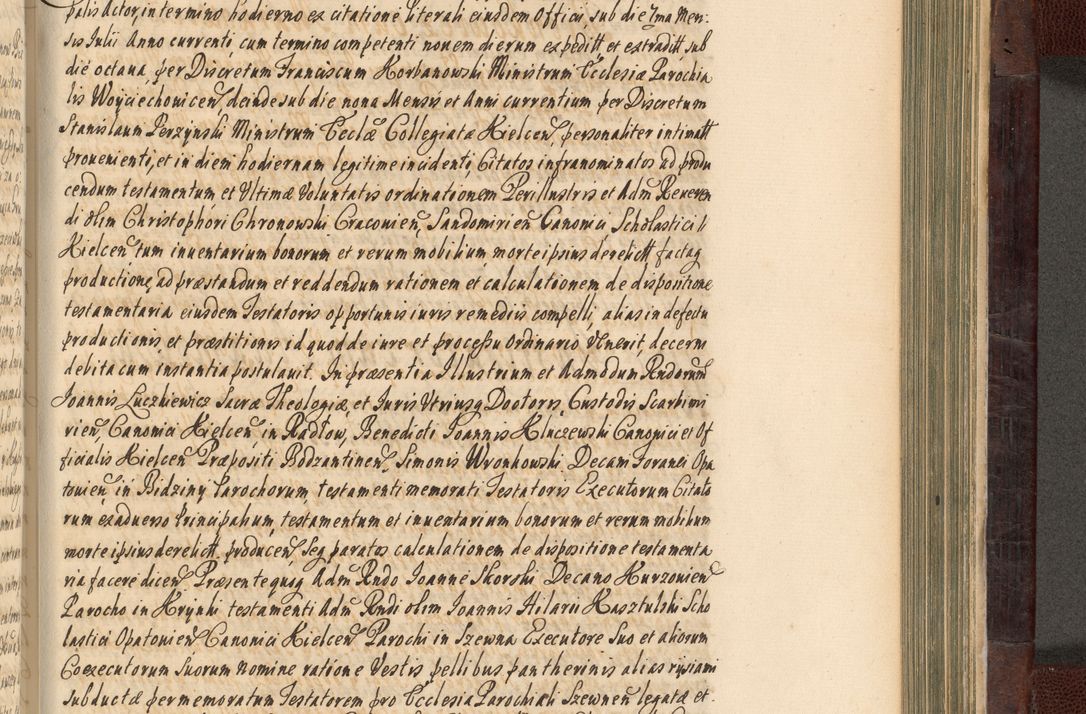 palis Actor, in termino hodierno ex citatione literali eiusdem Officii, sub die 7ma Men:
sis Julii Anno currenti, cum termino competenti nouem dierum expeditt, et extraditt, sub
die octaua, per Discretum Franciscum Horbanowski Ministrum Ecclesiæ Parochia
lis Woyciechouicen, deinde sub die nona Mensis et Anni currentium per Discretum
Stanislaum Perzynski Ministrum Eccliæ Collegiatæ Kielcen, personaliter intimatt
prouenienti, et in diem hodiernam legitime incidenti, Citatos infranominatos ad produ
cendum testamentum et Ultimæ Voluntatis ordinationem Perillustris et Adm Reueren
di olim Christophori Chronowski Cracouien, Sandomirien Canonici Scholastici
Kielcen tum inuentarium bonorum et rerum mobilium morte ipsius derelictt factaq
productione, ad præstandum et reddendum rationem et calculationem de dispositione
testamentaria eiusdem Testatoris opportunis iuris remediis compelli, alias in defectu
productionis, et præstitionis id quod de iure et processu ordinario Venerit, decerni
debita cum instantia postulauit. In præsentia Illustrium et Admodum Rndorum
Joannis Luczkiewicz Sacræ Theologiæ, et Juris Utriusq Doctoris, Custodis Scarbimi
rien, Canonici Kielcen in Radłow, Benedicti Joannis Kluczewski Canonici et Of
ficialis Kielcen Præpositi Bodzantinen, Simonis Wronkowski Decani Foranei Opa
touien, in Bidziny Parochorum, testamenti memorati Testatoris Executorum Citato
rum ex aduerso Principalium, testamentum et inuentarium bonorum et rerum mobilium
morte ipsius derelictt. producen, Seq paratos calculationem de dispositione testamenta
ria facere dicen Præsente quoq Adm Rndo Joanne Skorski Decano Kurzouien
Parocho in Krynki testamenti Adm Rndi olim Joannis Hilarii Kasztulski Scho
lastici Opatouien Canonici Kielcen Parochi in Szewna Executore Suo et aliorum
Coexecutorum Suorum nomine ratione Vestis pellibus pantherinis alias rysiami
subductæ per memoratum Testatorem pro Ecclesia Parochiali Szewnen legatæ et